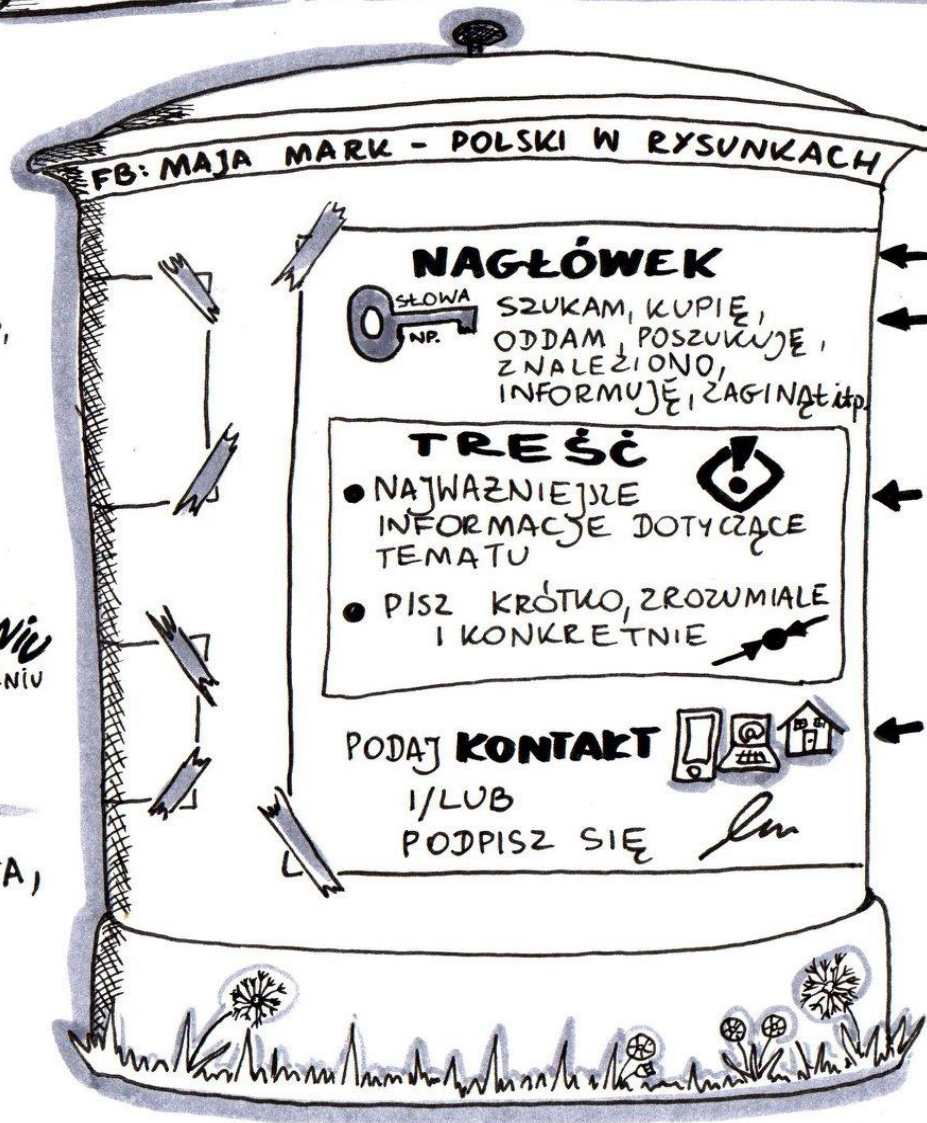 FB: MAJA MARK - POLSKI W RYSUNKACH
NAGŁÓWEK
SŁOWA
NP.
SZUKAM, KUPIĘ,
ODDAM, POSZUKUJĘ,
ZNALEZIONO,
INFORMUJĘ, ZAGINĄŁ itp.
TREŚĆ
• NAJWAŻNIEJSZE
INFORMACJE DOTYCZĄCE
TEMATU
• PISZ KRÓTKO, ZROZUMIALE
I KONKRETNIE
PODAJ KONTAKT
I/LUB
PODPISZ SIĘ
NIU
A,